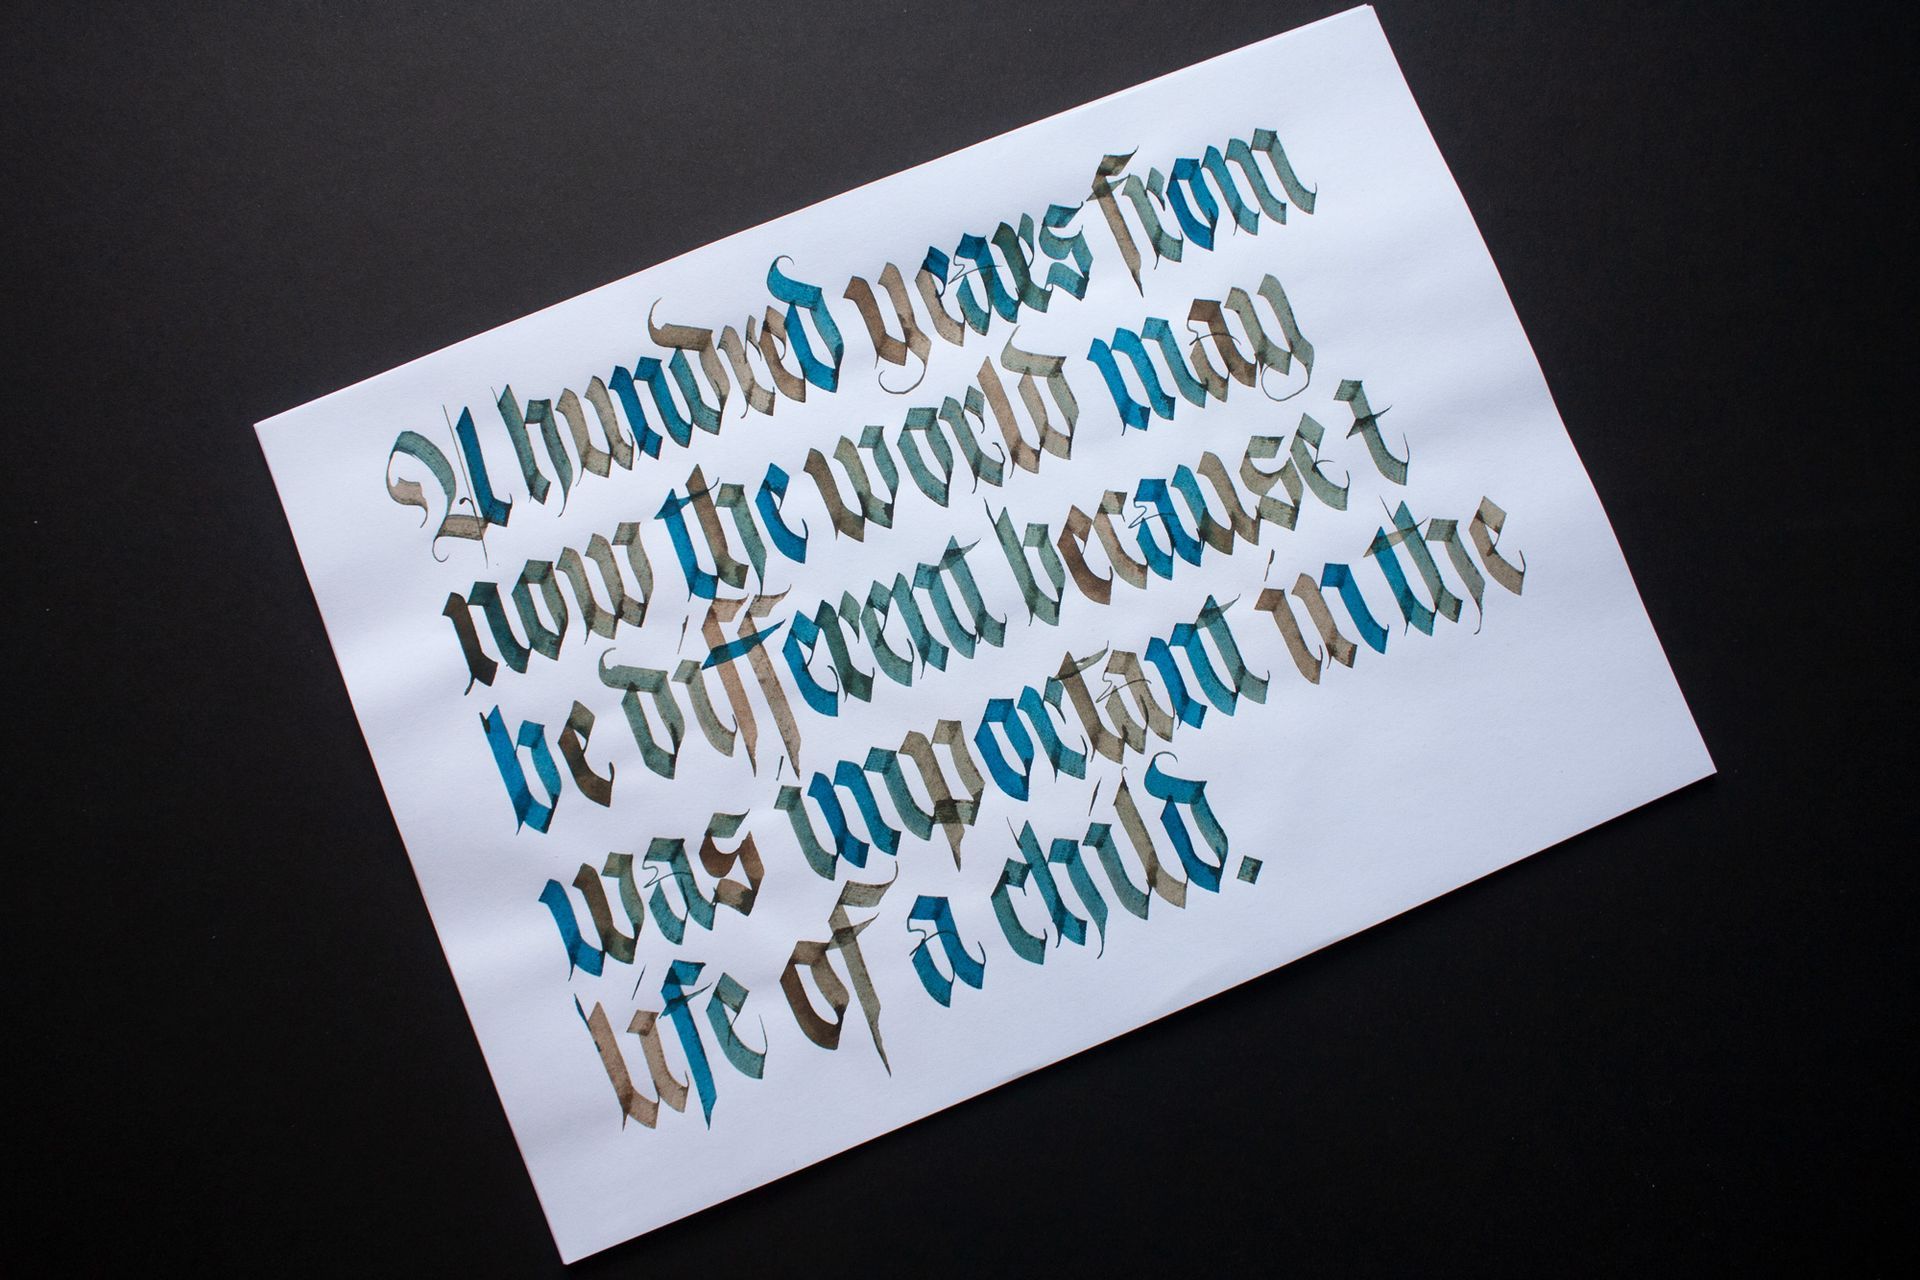 A hundred years from
now the world may
be different because i
was important in the
life of a child.